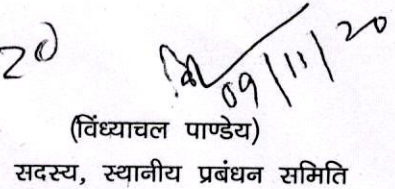 09/11/20
(विंध्याचल पाण्डेय)
सदस्य, स्थानीय प्रबंधन समिति